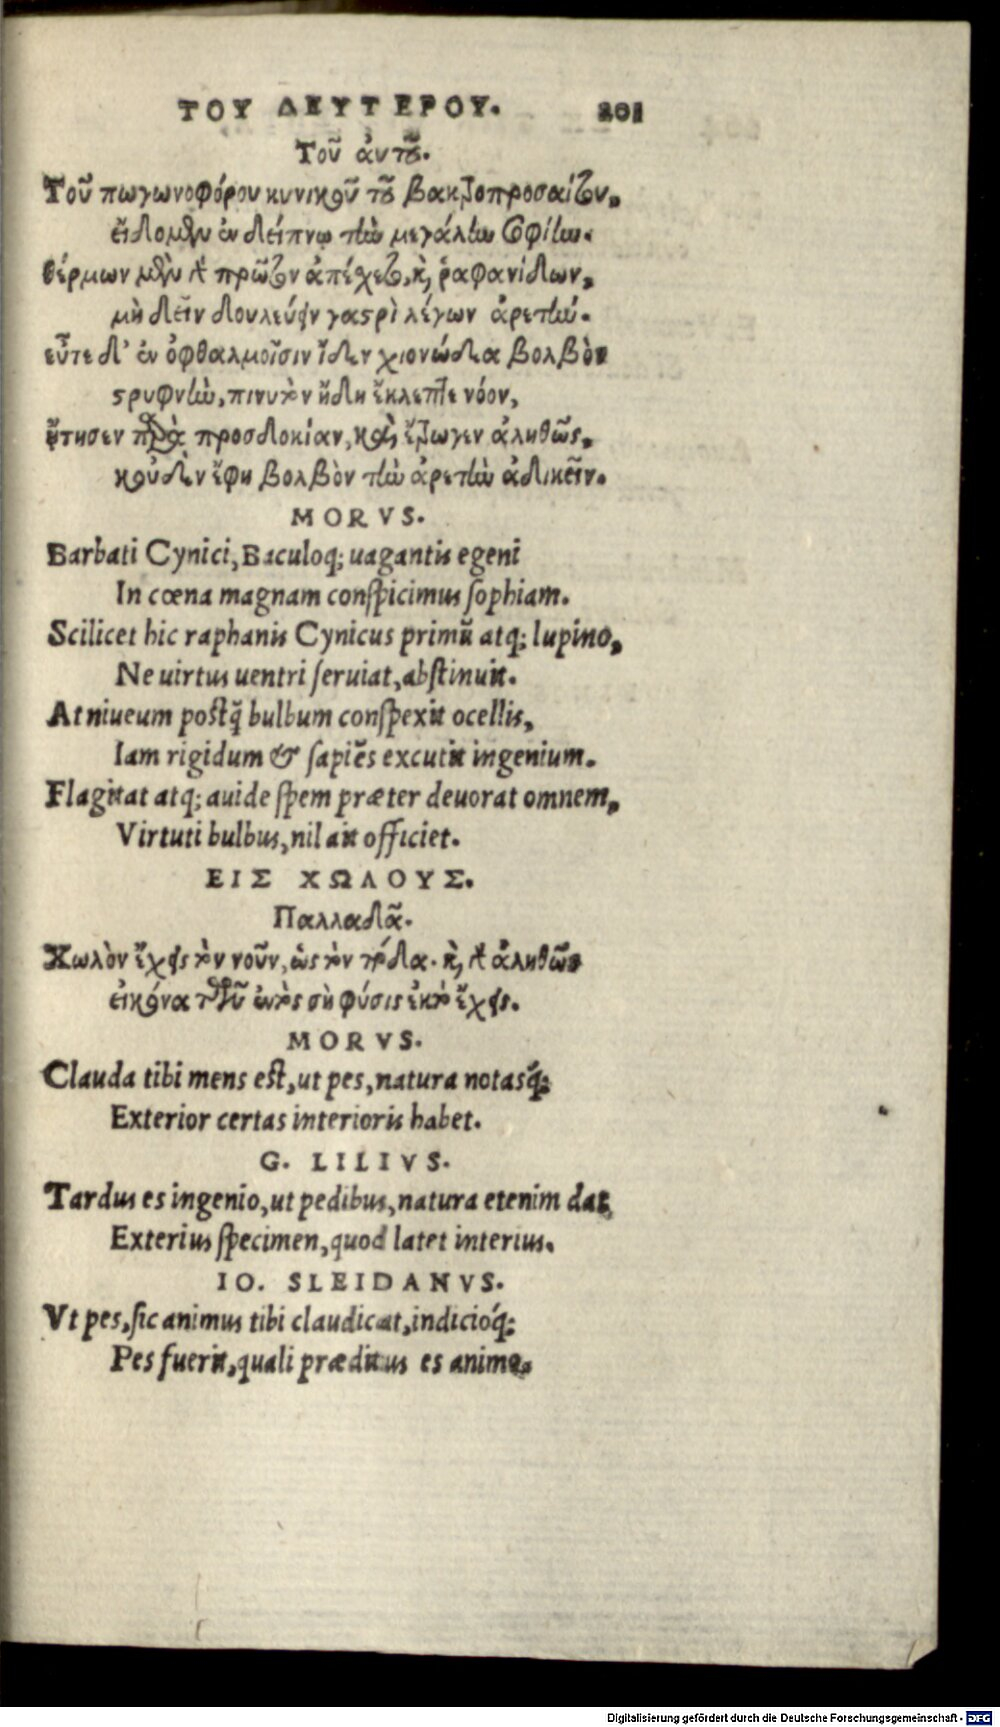 ΤΟΥ ΔΕΥΤΕΡΟΥ. 201
Τοῦ ἀυτοῦ.
Τοῦ πωγωνοφόρου κυνικοῦ τοῦ βακτροπροσαίτου,
εἴδομεν ἐν δείπνῳ τὴν μεγάλην σοφίαν.
θέρμων μὲν τὸ πρῶτον ἀπέχετο, καὶ ῥαφανίδων,
μὴ δεῖν δουλεύειν γαστρὶ λέγων ἀρετήν.
εὖτε δ' ἐν ὀφθαλμοῖσιν ἴδεν χιονώδεα βολβὸν
στρυφνὴν, πινυτὸν ἤδη ἔκλεπτε νόον,
ᾔτησεν παρὰ προσδοκίαν, καὶ ἔτρωγεν ἀληθῶς,
κοὐδὲν ἔφη βολβὸν τὴν ἀρετὴν ἀδικεῖν.
MORVS.
Barbati Cynici, Baculoq; uagantis egeni
In cœna magnam conspicimus sophiam.
Scilicet hic raphanis Cynicus primũ atq; lupino,
Ne uirtus uentri seruiat, abstinuit.
At niueum postq̃ bulbum conspexit ocellis,
Iam rigidum & sapiẽs excutit ingenium.
Flagitat atq; auide spem præter deuorat omnem,
Virtuti bulbus, nil ait officiet.
ΕΙΣ ΧΩΛΟΥΣ.
Παλλαδᾶ.
Χωλὸν ἔχεις τὸν νοῦν, ὡς τὸν πόδα. καὶ τὸ ἀληθῶς
εἰκόνα τοῦ ἐντὸς σὴ φύσις ἐκτὸς ἔχει.
MORVS.
Clauda tibi mens est, ut pes, natura notasq́;
Exterior certas interioris habet.
G. LILIVS.
Tardus es ingenio, ut pedibus, natura etenim dat
Exterius specimen, quod latet interius.
IO. SLEIDANVS.
Vt pes, sic animus tibi claudicat, indicioq́;
Pes fuerit, quali præditus es animo.
Digitalisierung gefördert durch die Deutsche Forschungsgemeinschaft - DFG